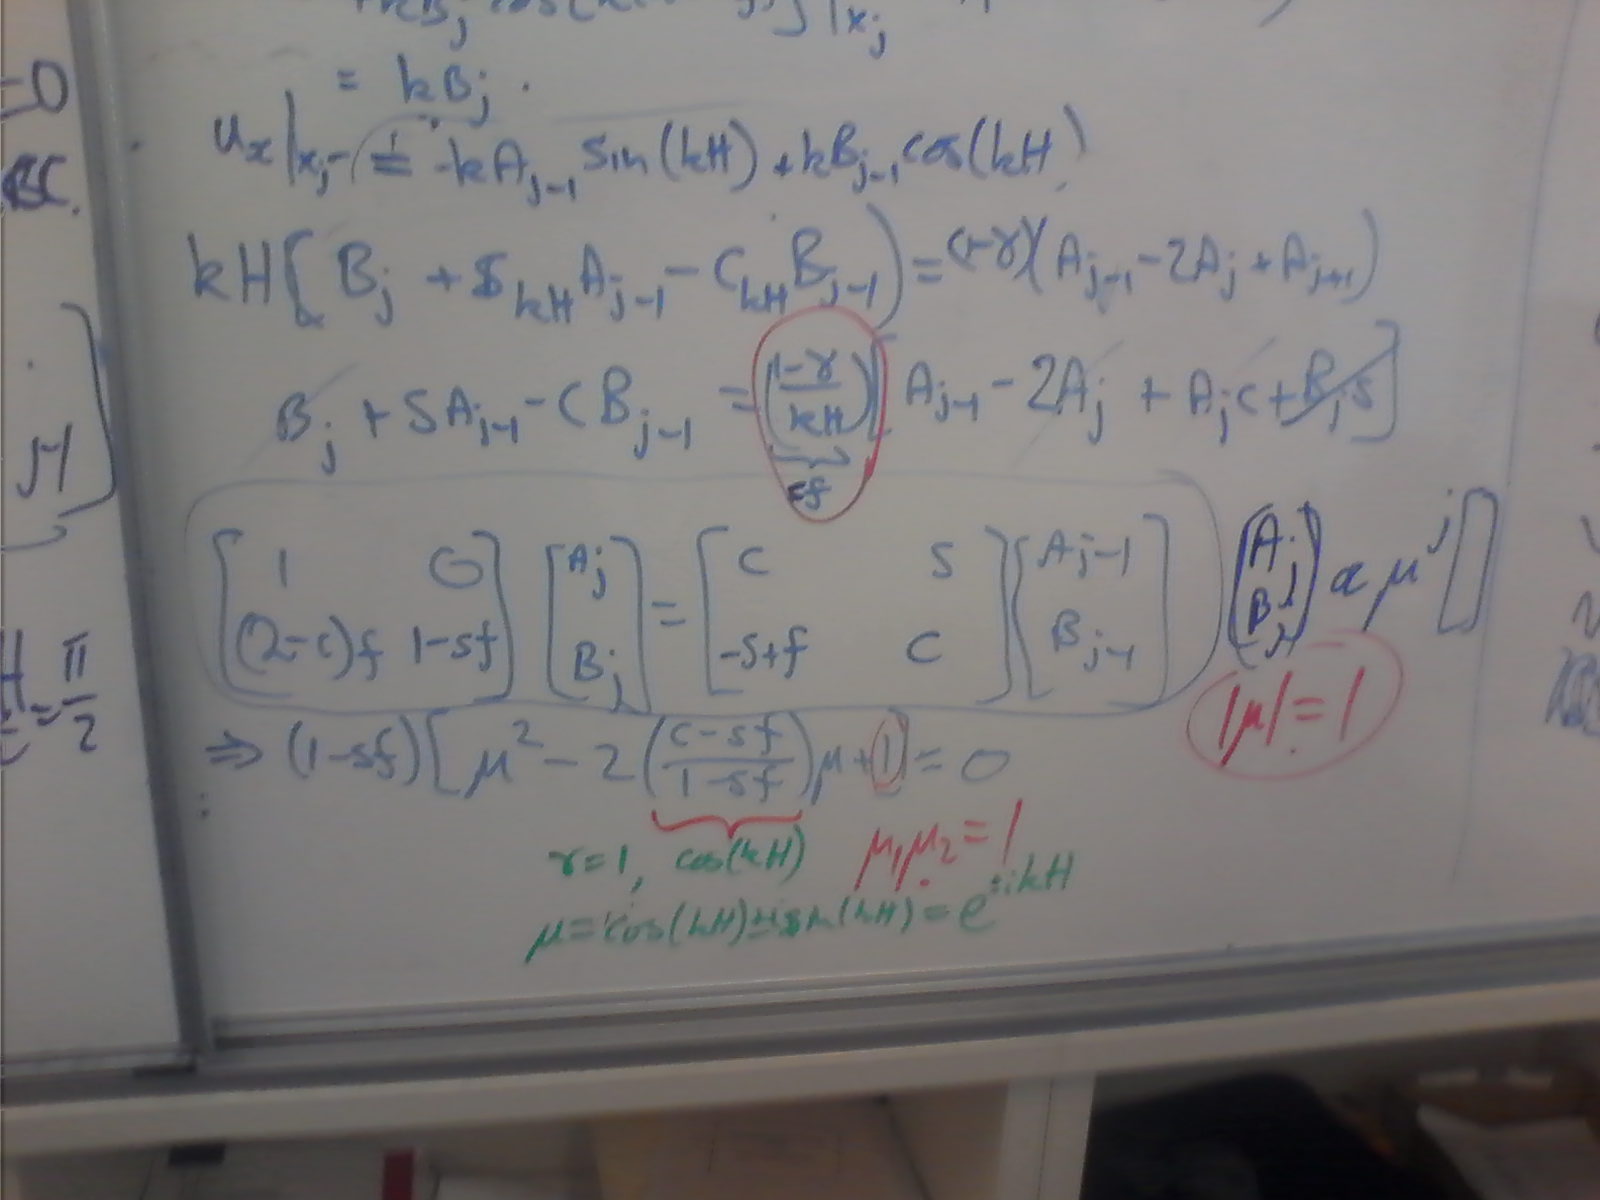 = kB_j .
u_x|x_j^- = -kA_{j-1} sin(kH) + kB_{j-1} cos(kH)
kH[ B_j + S_{kH} A_{j-1} - C_{kH} B_{j-1} ) = (1-γ)(A_{j-1} - 2A_j + A_{j+1})
B_j + SA_{j-1} - CB_{j-1} = ((1-γ)/kH)[ A_{j-1} - 2A_j + A_j c + B_j s ]
f
[1 0; (2-c)f 1-sf] [A_j; B_j] = [c s; -s+f c] [A_{j-1}; B_{j-1}]
(A_j; B_j) α μ^j []
|μ| = 1
⇒ (1-sf)[ μ² - 2((c-sf)/(1-sf))μ + 1] = 0
γ=1, cos(kH)
μ₁μ₂ = 1
μ = cos(kH) ± i sin(kH) = e^{±ikH}
=0
BC.
H
= π/2